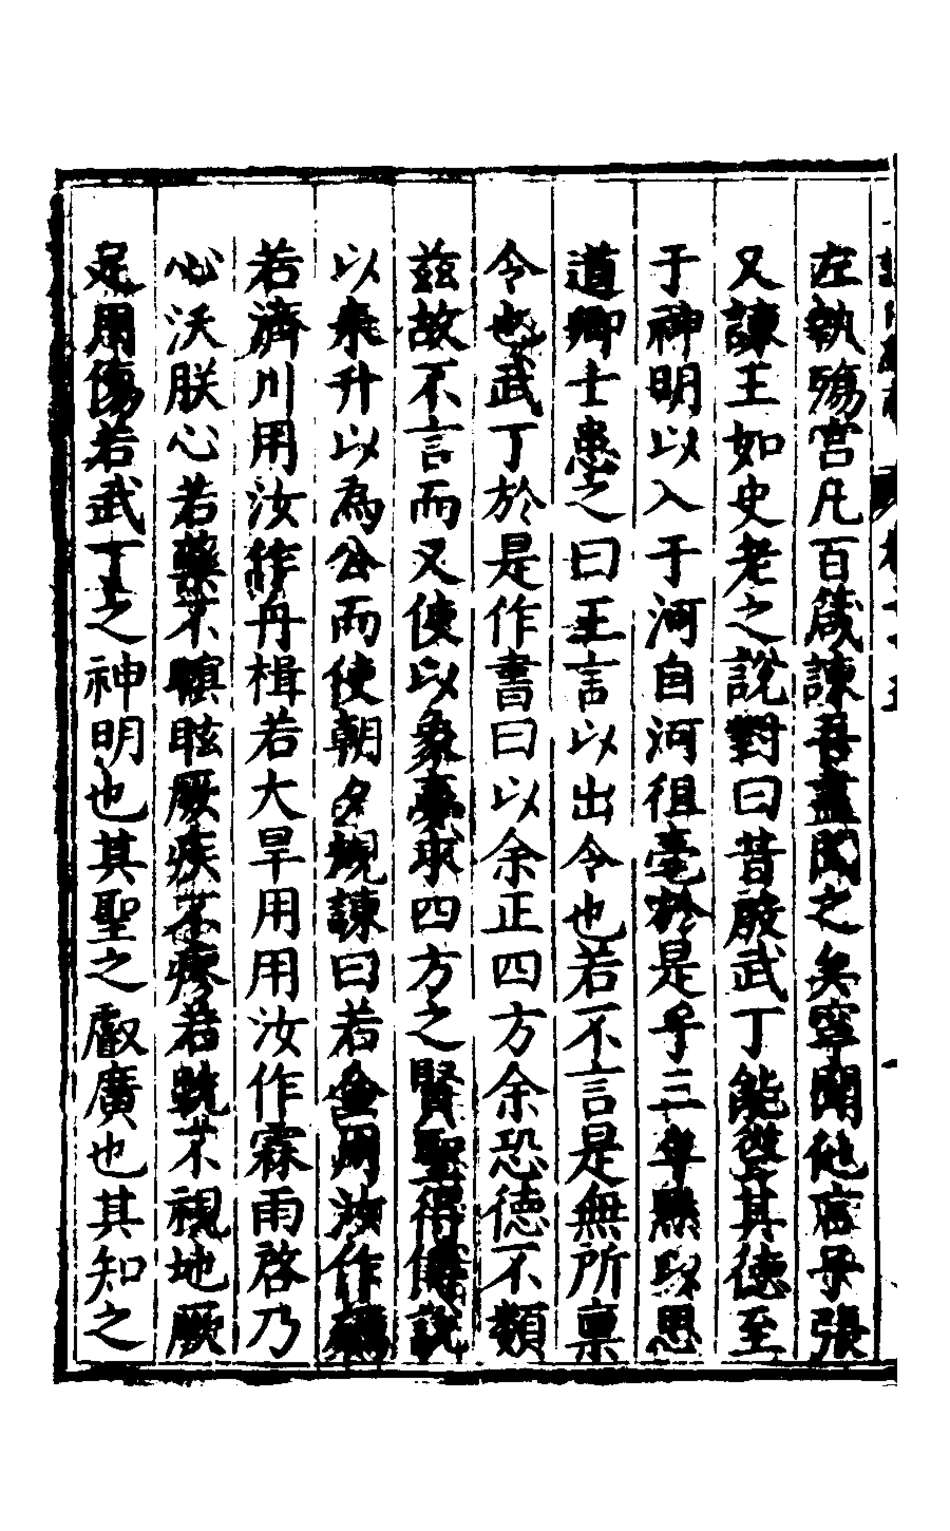 左執殤宮凡百箴諫吾盡聞之矣寧聞他言子張
又諫王如史老之說對曰昔殷武丁能聳其德至
于神明以入于河自河徂亳於是乎三年黙以思
道卿士患之曰王言以出令也若不言是無所禀
令也武丁於是作書曰以余正四方余恐德不類
茲故不言而又使以象夢求四方之賢聖得傅說
以來升以為公而使朝夕規諫曰若金用汝作礪
若濟川用汝作舟楫若大旱用用汝作霖雨啓乃
心沃朕心若藥不瞑眩厥疾不瘳若跣不視地厥
足用傷若武丁之神明也其聖之叡廣也其知之